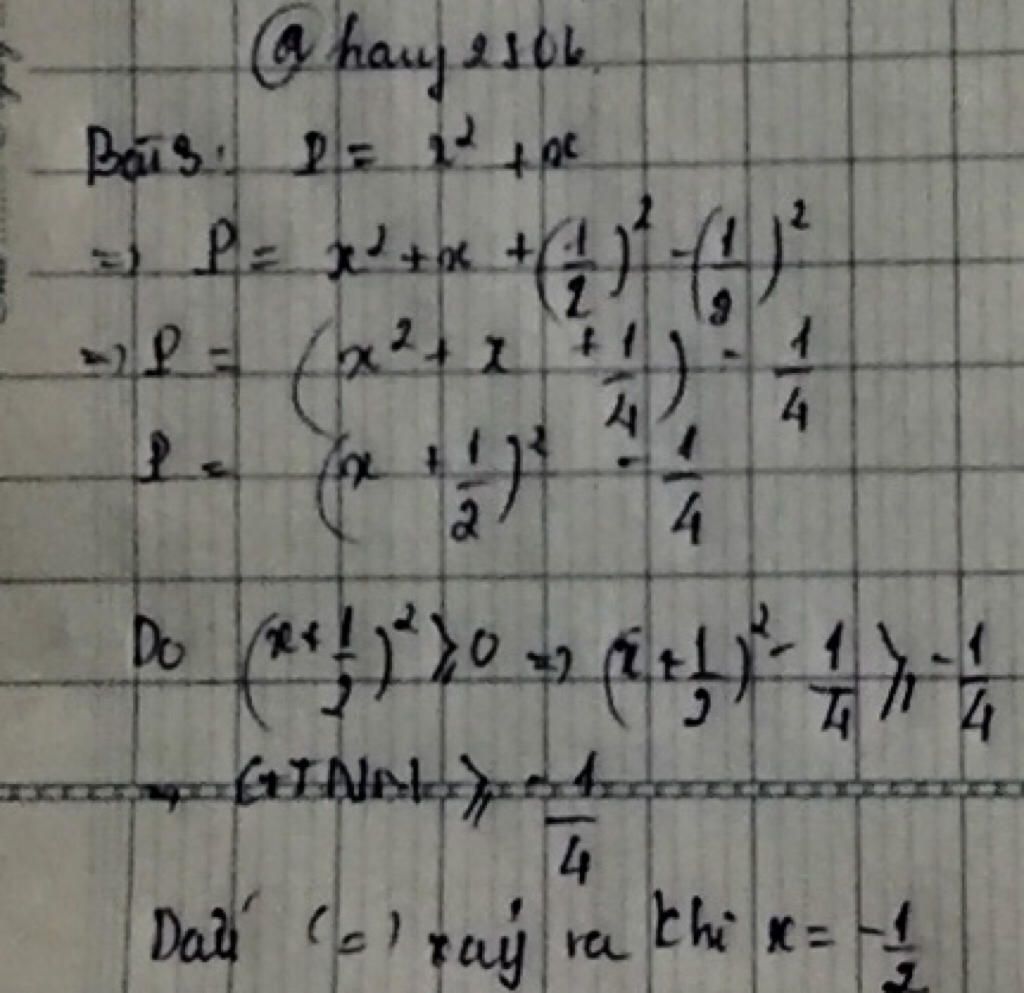 @hauy2506
Bài 3: P = x² + x
=> P = x² + x + (1/2)² - (1/2)²
=> P = (x² + x + 1/4) - 1/4
P = (x + 1/2)² - 1/4
Do (x + 1/2)² ⩾ 0 => (x + 1/2)² - 1/4 ⩾ -1/4
=> GTNN ⩾ -1/4
Dấu (=) xảy ra khi x = -1/2